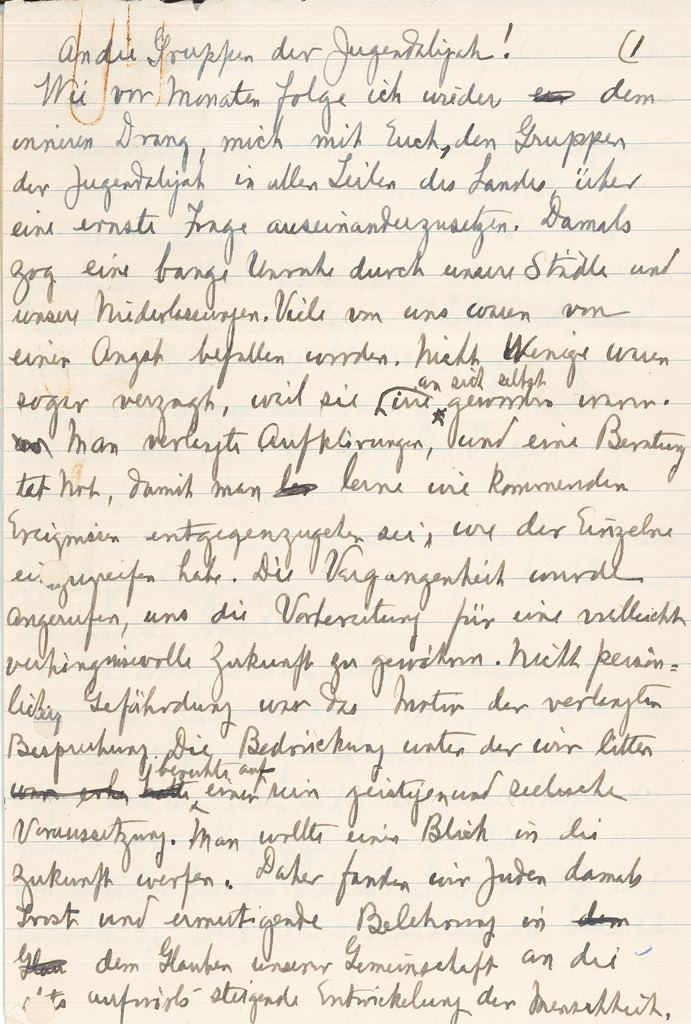 An die Gruppen der Jugendalijah! (1
Wie vor Monaten folge ich wieder dem
inneren Drang, mich mit Euch, den Gruppen
der Jugendalijah in allen Teilen des Landes, über
eine ernste Frage auseinanderzusetzen. Damals
zog eine bange Unruhe durch unsere Städte und
unsere Niederlassungen. Viele von uns waren von
einer Angst befallen worden. Nicht Wenige waren
an sich selbst
sogar verzagt, weil sie irre geworden waren.
Man verlangte Aufklärungen, und eine Beratung
tat Not, damit man lerne wie kommenden
Ereignissen entgegenzugehen sei, wie der Einzelne
einzugreifen habe. Die Vergangenheit wurde
angerufen, uns die Vorbereitung für eine vielleicht
verhängnisvolle Zukunft zu gewähren. Nicht persön-
liche Gefährdung war das Motiv der verlangten
Besprechung. Die Bedrückung unter der wir litten
beruhte auf
einer rein geistigen und seelische
Voraussetzung. Man wollte einen Blick in die
Zukunft werfen. Daher fanden wir Juden damals
Trost und ermutigende Belehrung in
dem Glauben unserer Gemeinschaft an die
aufwärts steigende Entwickelung der Menschheit.